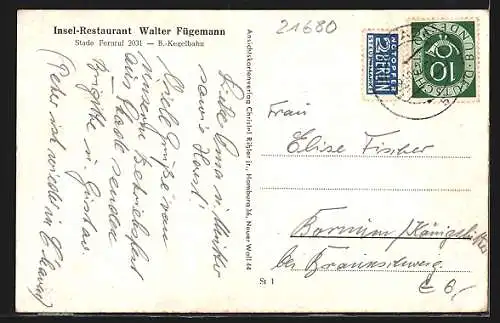 Insel-Restaurant Walter Fügemann
Stade Fernruf 2031 — B.-Kegelbahn
21680
Liebe Oma u. Mutter
sowie Horst!
Viele Grüße von
unserem Betriebsfest
aus Stade senden
Brigitte u. Gustav.
(Peter ist wieder in
Ansichtskartenverlag Christel Rößler jr., Hamburg 36, Neuer Wall 44
St 1
NOTOPFER
2 BERLIN
STEUERMARKE
DEUTSCHE BUNDESPOST
10
Frau
Elise Fischer
Bornum / Königslutter
bei Braunschweig
€ 6,-